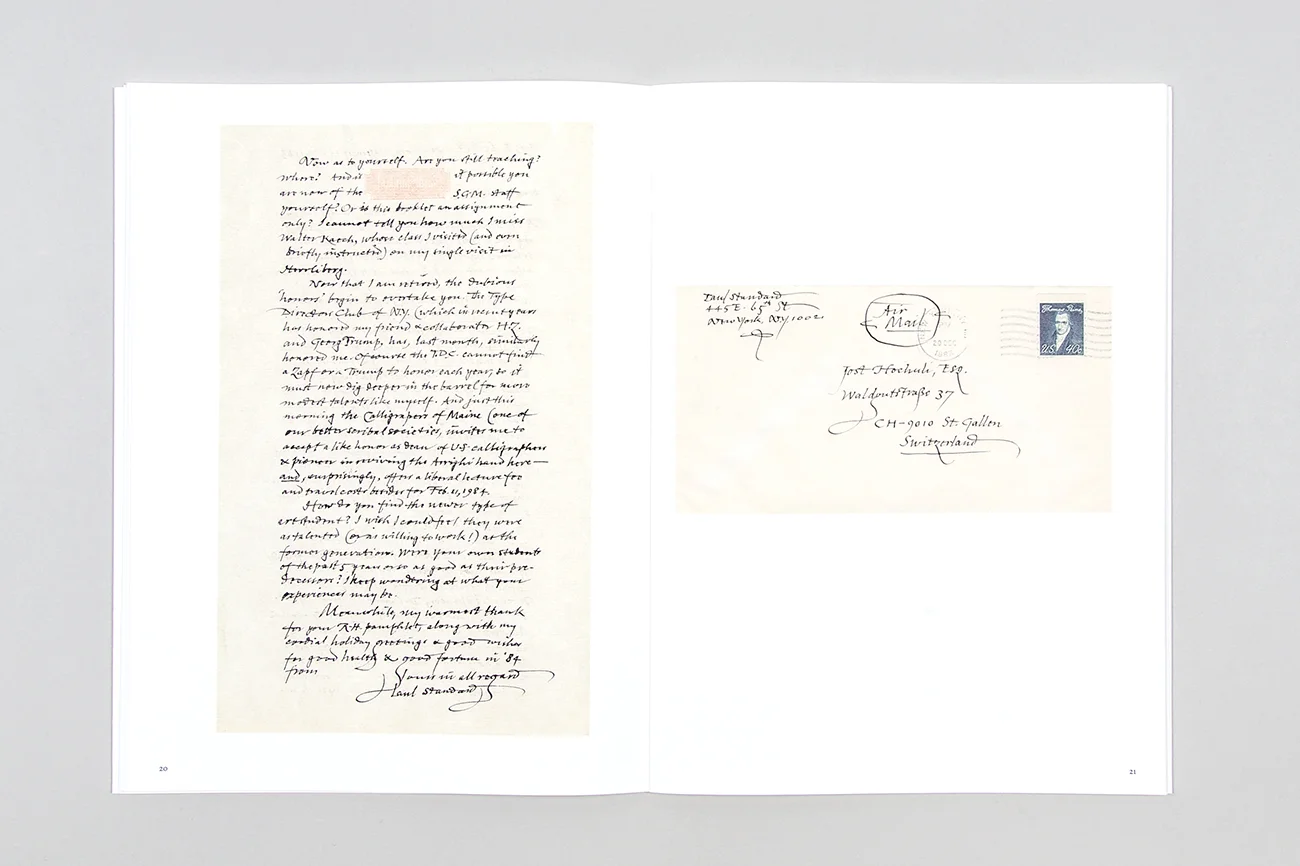 Now as to yourself. Are you still teaching?
Where? And is it possible you
are now of the S.G.M. staff
yourself? Or is this booklet an assignment
only? I cannot tell you how much I miss
Walter Kaech, whose class I visited (and even
briefly instructed) on my single visit in
Herrliberg.
Now that I am retired, the dubious
'honors' begin to overtake you. The Type
Directors Club of N.Y. (which in recent years
has honored my friend & collaborator H.Z.
and Georg Trump, has, last month, similarly
honored me. Of course the T.D.C. cannot find
a Zapf or a Trump to honor each year, so it
must now dig deeper in the barrel for more
modest talents like myself. And just this
morning the Calligraphers of Maine (one of
our better scribal societies, invites me to
accept a like honor as dean of U.S. calligraphers
& pioneer in reviving the Arrighi hand here—
and, surprisingly, offers a liberal lecture fee
and travel costs besides for Feb. 11, 1984.
How do you find the newer type of
art student? I wish I could feel they were
as talented (or as willing to work!) as the
former generation. Were your own students
of the past 5 years or so as good as their pre-
decessors? I keep wondering at what your
experiences may be.
Meanwhile, my warmest thank
for your R.H. pamphlet, along with my
cordial holiday greetings & good wishes
for good health & good fortune in '84
from
Yours in all regard
Paul Standard
20
Paul Standard
445 E. 65th St
New York N.Y. 10021
Air
Mail
20 DEC
Thomas Paine
U.S. 40c
Jost Hochuli, Esq.
Waldgutstraße 37
CH-9010 St. Gallen
Switzerland
21